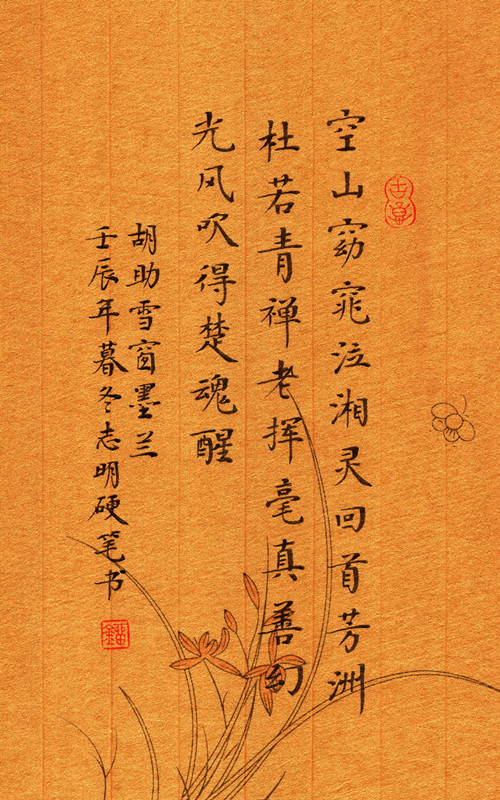 空山窈窕泣湘灵回首芳洲
杜若青禅老挥毫真善幻
光风吹得楚魂醒
胡助雪窗墨兰
壬辰年暮冬志明硬笔书